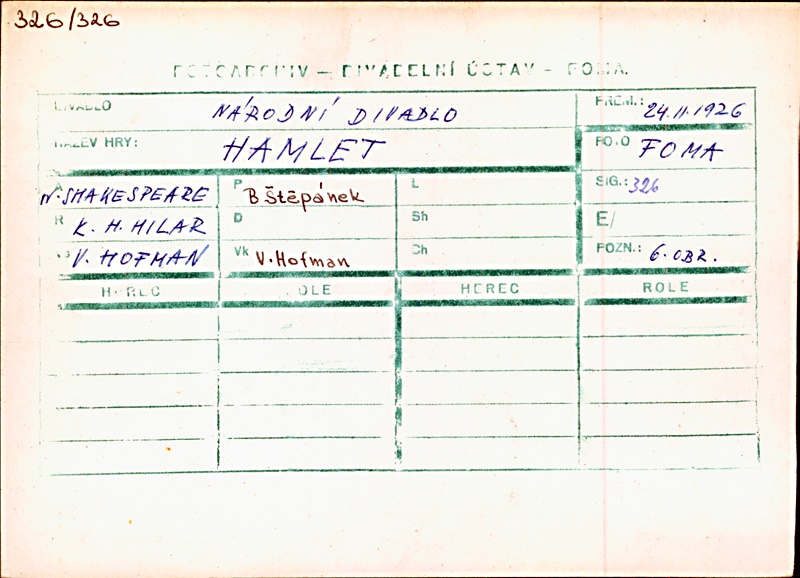 326/326
FOTOARCHIV – DIVADELNÍ ÚSTAV – FOMA.
DIVADLO NÁRODNÍ DIVADLO PREM.: 24.II.1926
NÁZEV HRY: HAMLET FOTO FOMA
A W. SHAKESPEARE P B Štěpánek L SIG.: 326
R K. H. HILAR D Sh E/
V. HOFMAN Vk V. Hofman Ch POZN.: 6. OBR.
HEREC ROLE HEREC ROLE